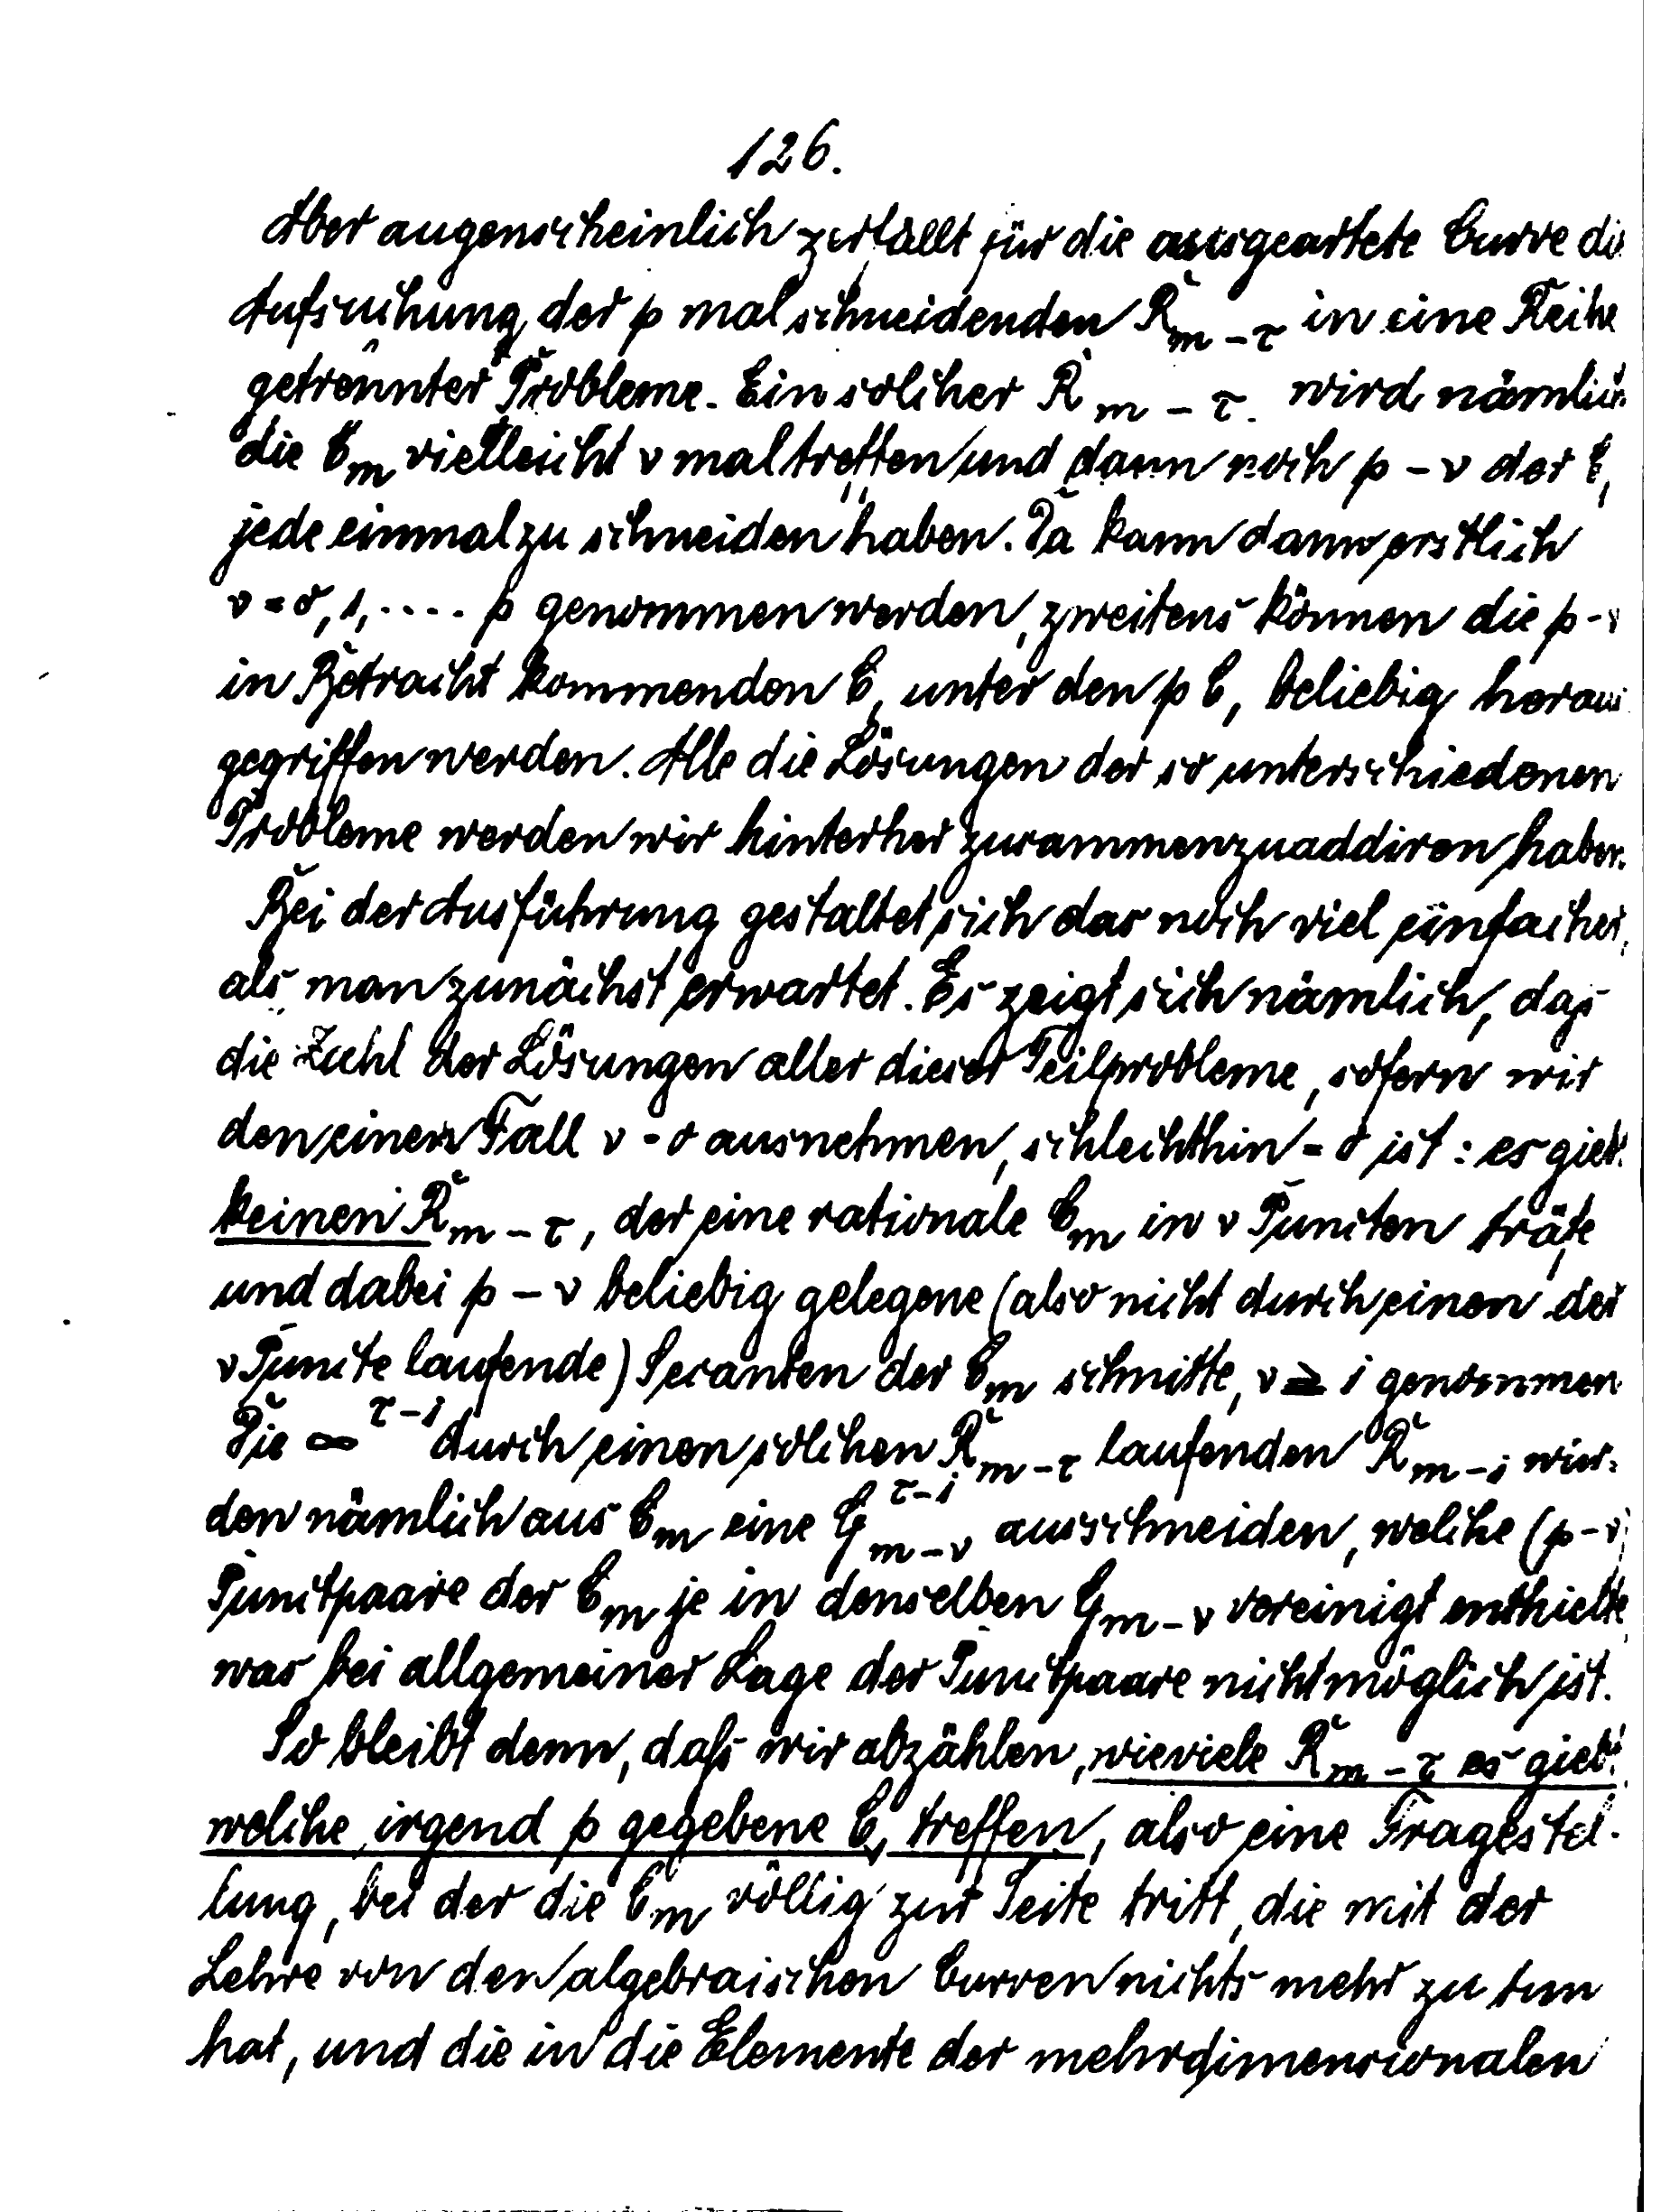 126.
Aber augenscheinlich zerfällt für die ausgeartete Curve die
Aufsuchung der p mal schneidenden R_{m-τ} in eine Reihe
getrennter Probleme. Ein solcher R_{m-τ} wird nämlich
die C_m vielleicht ν mal treffen und dann noch p-ν der C_1
jede einmal zu schneiden haben. Da kann dann erstlich
ν = 0, 1, .... p genommen werden, zweitens können die p-ν
in Betracht kommenden C_1 unter den p C_1 beliebig heraus
gegriffen werden. Alle die Lösungen der so unterschiedenen
Probleme werden wir hinterher zusammenzuaddiren haben.
Bei der Ausführung gestaltet sich das noch viel einfacher,
als man zunächst erwartet. Es zeigt sich nämlich, daß
die Zahl der Lösungen aller dieser Teilprobleme, sofern wir
den einen Fall ν = 0 ausnehmen, schlechthin = 0 ist: es giebt
keinen R_{m-τ}, der eine rationale C_m in ν Puncten träfe
und dabei p-ν beliebig gelegene (also nicht durch einen der
ν Puncte laufende) Secanten der C_m schnitte, ν ≥ 1 genommen.
Die ∞^{τ-1} durch einen solchen R_{m-τ} laufenden R_{m-1} wür-
den nämlich aus C_m eine G_{m-ν}^{τ-1} ausschneiden, welche (p-ν)
Punctpaare der C_m je in denselben G_{m-ν} vereinigt enthielte,
was bei allgemeiner Lage der Punctpaare nicht möglich ist.
So bleibt denn, daß wir abzählen, wieviele R_{m-τ} es giebt,
welche irgend p gegebene C_1 treffen, also eine Fragestel-
lung, bei der die C_m völlig zur Seite tritt, die mit der
Lehre von den algebraischen Curven nichts mehr zu tun
hat, und die in die Elemente der mehrdimensionalen